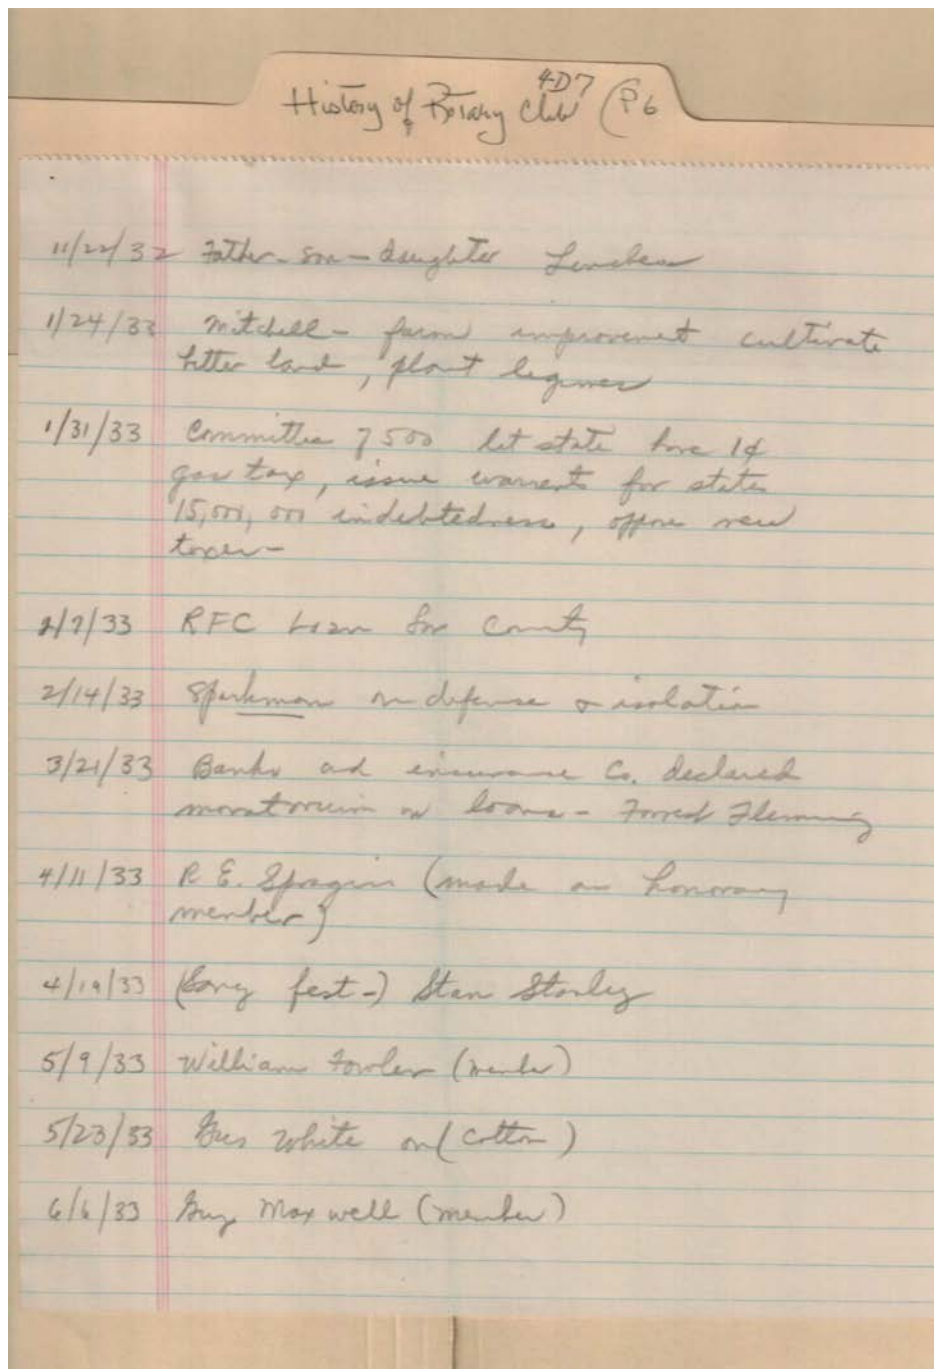 4D7
History of Rotary Club (P6
11/22/32 Father-son-daughter Luncheon
1/24/33 Mitchell - farm improvement cultivate
better land, plant legumes
1/31/33 Committee 7500 let state have 1¢
gas tax, issue warrents for states
15,000,000 indebtedness, oppose new
taxes-
2/7/33 RFC Loan for County
2/14/33 Sparkman on defense & isolation
3/21/33 Banks and insurance Co. declared
moratorium on loans - Forrest Fleming
4/11/33 R E. Spragins (made an honorary
member)
4/19/33 (Song fest-) Stan Stanley
5/9/33 William Fowler (member)
5/23/33 Gus White on (cotton)
6/6/33 Guy Maxwell (member)